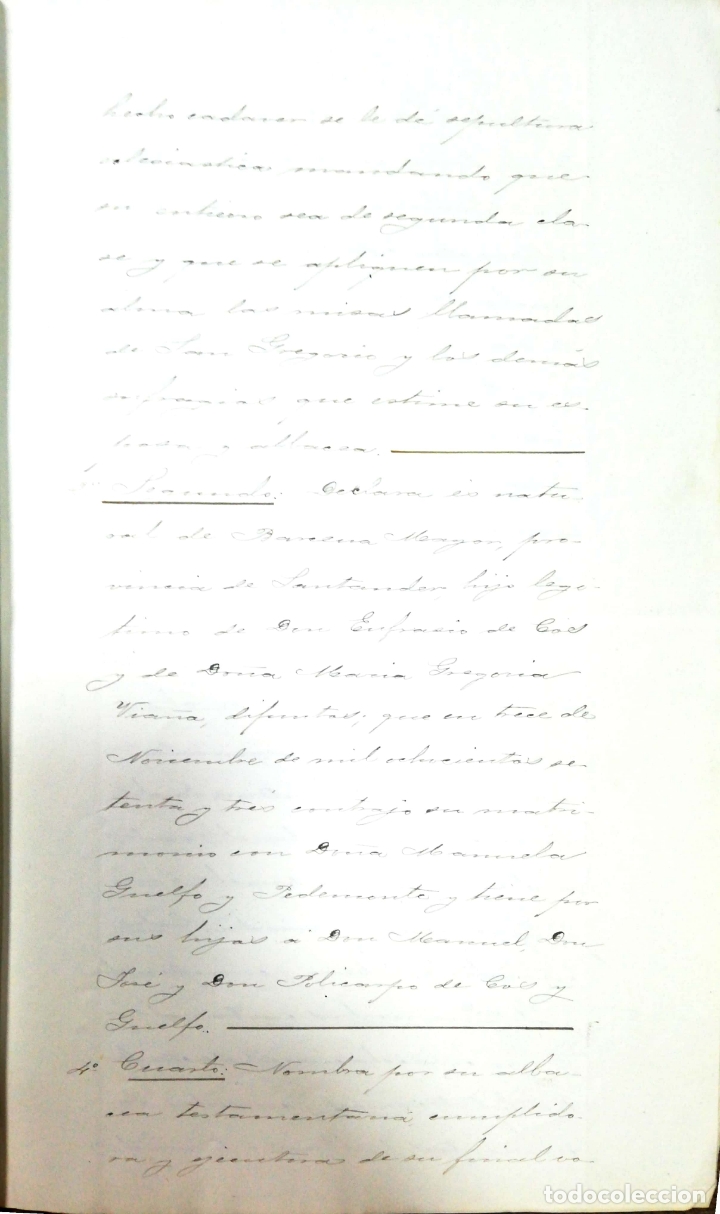 hecho cadaver se le dé sepultura
eclesiastica, mandando que
su entierro sea de segunda cla-
se y que se apliquen por su
alma las misas llamadas
de San Gregorio y los demás
sufragios que estime su es-
posa y albacea.
Segundo: Declara es natu-
ral de Barcena Mayor, pro-
vincia de Santander, hijo legi-
timo de Don Eufrasio de Cos
y de Doña Maria Gregoria
Viaña, difuntos; que en trece de
Noviembre de mil ochocientos se-
tenta y tres contrajo su matri-
monio con Doña Manuela
Guelfo y Pedemonte y tiene por
sus hijos á Don Manuel, Don
José y Don Policarpo de Cos y
Guelfo.
4º Cuarto: Nombra por su alba-
cea testamentaria, cumplido-
ra y ejecutora de su final vo-
todocoleccion